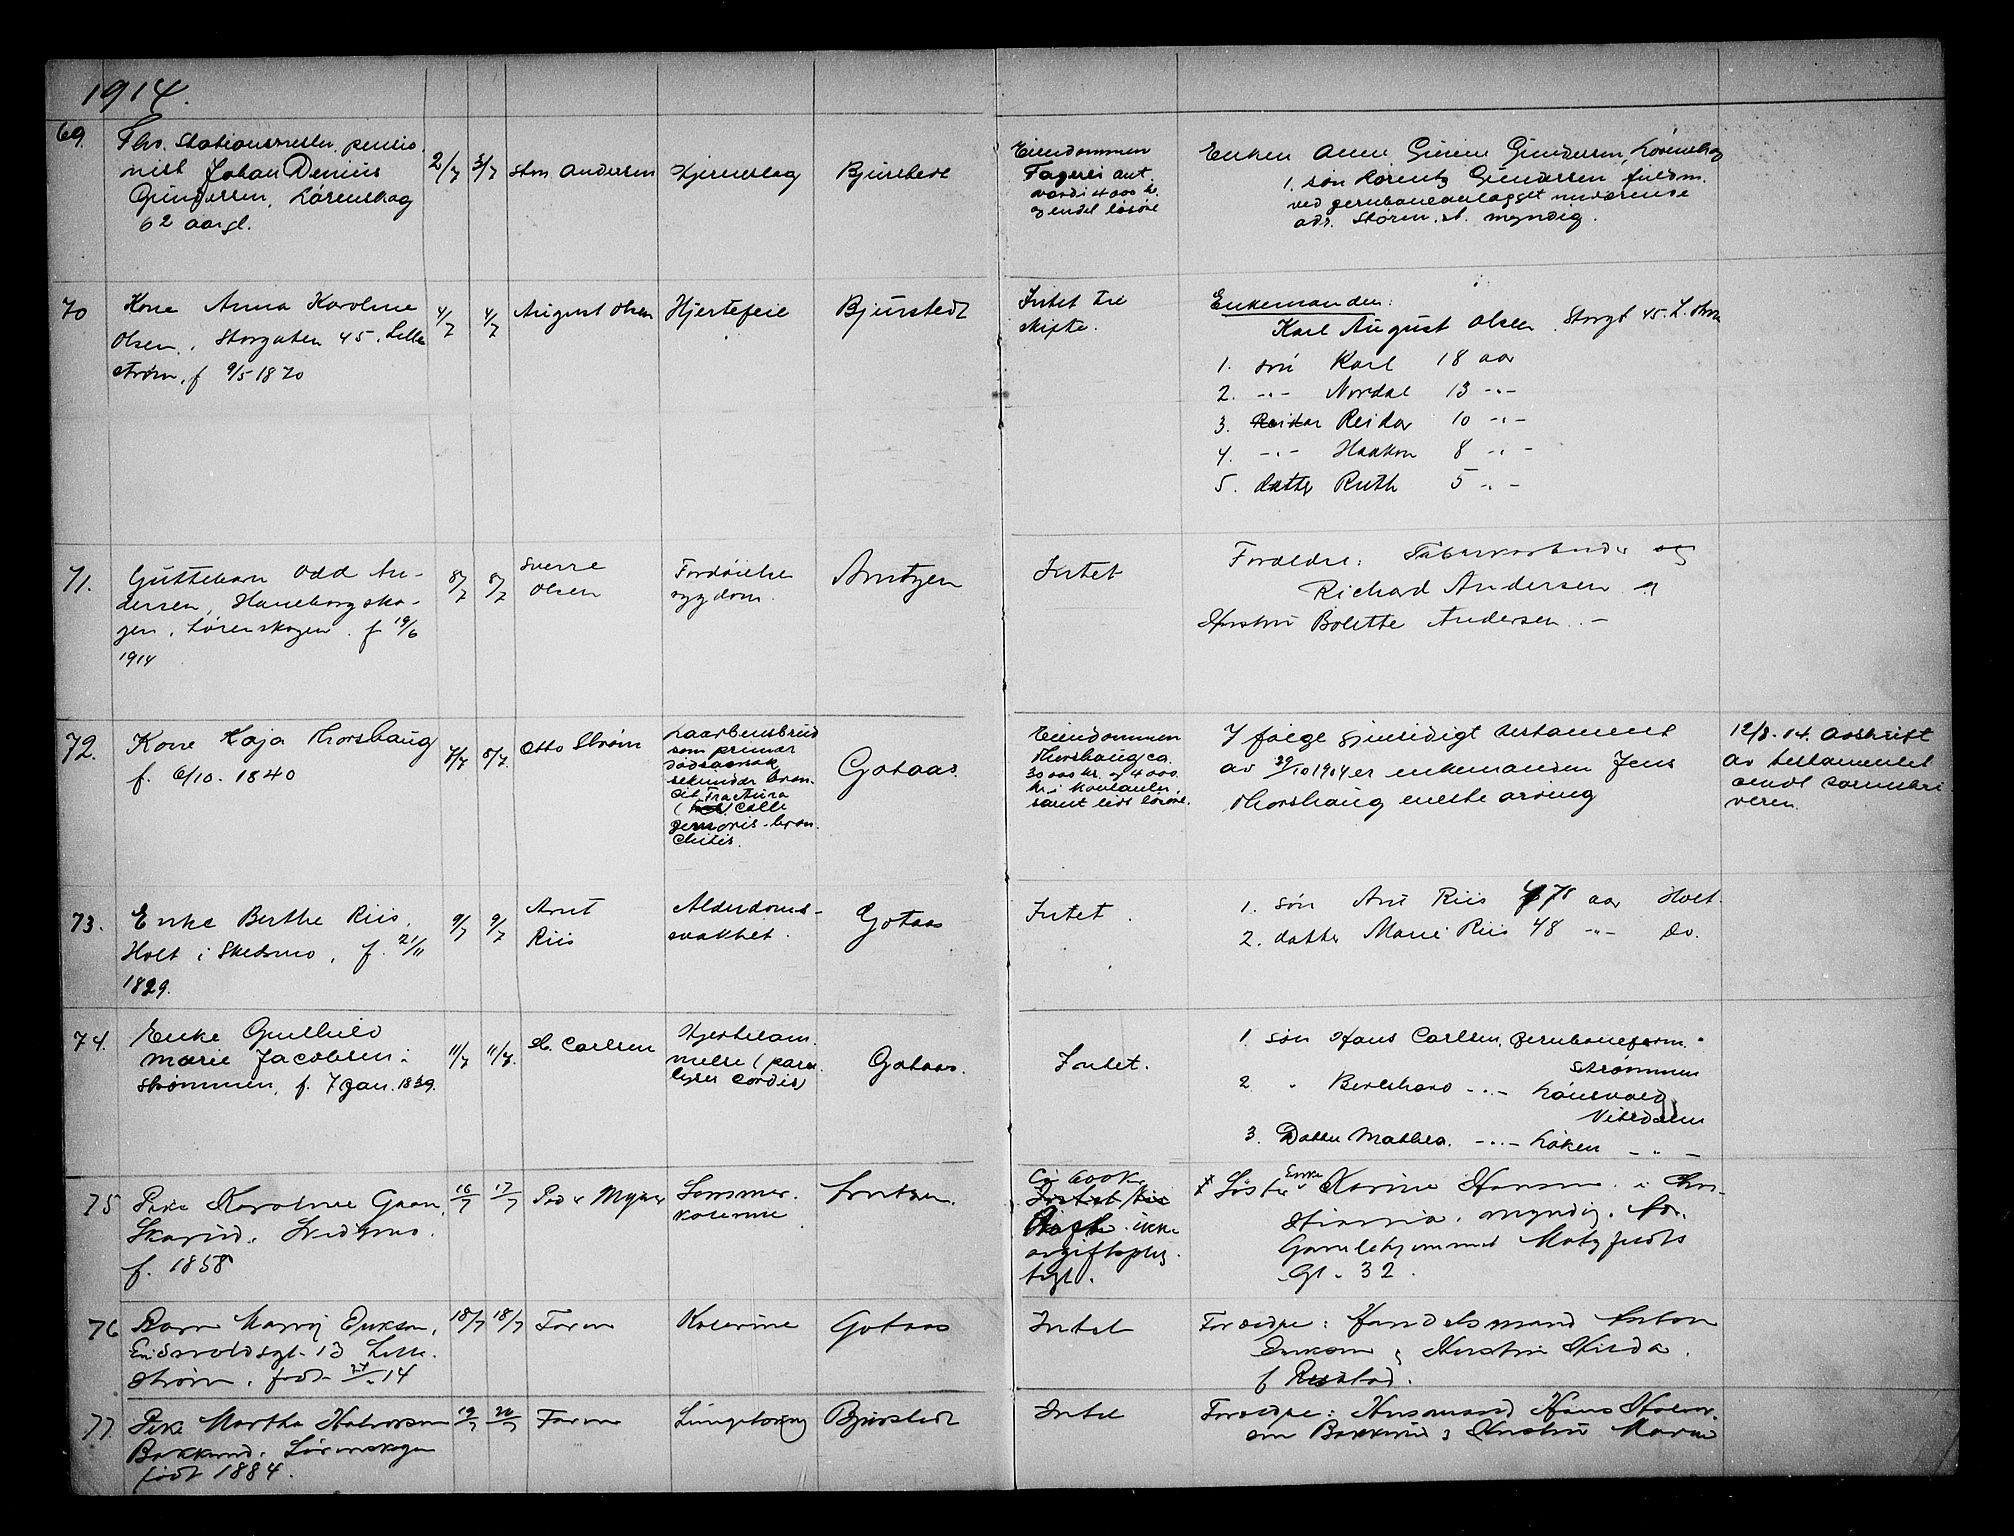 1914.
69.
Fhv. Stationsmester, pensio-
nist Johan Denius
Gundersen, Lørenskog
62 aar gl.
2/7
3/7
Andersen
Hjerneslag
Bjurstedt
Eiendommen
Fagerli ant.
værdi 4000 kr.
og endel løsøre
Enken Anne Gundersen, Lørenskog
1. søn Lorentz Gundersen, fuldm.
ved jernbaneanlægget nuværende
adr. Støren st. myndig.
70
Kone Anna Karoline
Olsen, Storgaten 45, Lille-
strøm, f 9/5 1870
4/7
4/7
August Olsen
Hjertefeil
Bjurstedt
Intet til
skifte.
Enkemanden:
Karl August Olsen Storgt 45. L.strøm
1. søn Karl 18 aar
2. -"- Nordal 13 -"-
3. Reidar 10 -"-
4. -"- Haakon 8 -"-
5. datter Ruth 5 -"-
71.
Guttebarn Odd An-
dersen, Haneborgsko-
gen, Lørenskogen. f 19/6
1914
8/7
8/7
Sverre
Olsen
Fordøielses
sygdom.
Arntzen
Intet
Forældre: og
Richard Andersen
Hustru Bolette Andersen. -
72.
Kone Kaja Thorshaug
f. 6/10. 1840
8/7
8/7.
Otto Strøm
Laarbensbrud
som primær
dødsaarsak
sekundær bron-
chit Fractura
( colli
femoris - bron-
chitis.
Gotaas.
Eiendommen
Thorshaug ca.
30000 kr. og 4000
kr. i kontanter,
samt lidt løsøre.
I følge gjensidigt testament
av 29/10 1904 er enkemanden Jens
Thorshaug eneste arving
12/8. 14. Avskrift
av testamentet
sendt Sorenskri-
veren.
73.
Enke Berthe Riis,
Holt i Skedsmo, f. 21/11
1829.
9/7
9/7
Arnt
Riis
Alderdoms-
svakhet.
Gotaas
Intet.
1. søn Riis aar Holt.
2. datter Marie Riis 48 -"- Do.
74.
Enke Gunhild
Marie Jacobsen
Strømmen, f. 7 Jan. 1839.
11/7
11/7.
H. Carlsen
Hjertelam-
melse (para-
lyses cordis)
Gotaas.
Intet.
1. søn Hans Carlsen, jernbaneform.
Strømmen
2 " Bernhard -"-
3. Datter Mathea. -"- Løken -"-
75
Pike Karoline Gran
Skarud, Skedsmo.
f. 1858
16/7
17/7
Peder Myrer
Arntzen.
Ca 600 kr
Intet til
Skifte. ikke
avgiftsplig-
tigt.
Søster Enke Karine Hansen i Chri-
stiania, myndig. Adr.
Gamlehjemmet
Gt. 32.
76
Barn Eriksen,
Eidsvoldsgt. 13 Lille-
strøm. født 14
18/7
18/7
Faren
Kolerine
Gotaas
Intet
Forældre: Handelsmand Anton
Eriksen og Hustru Hilda
f Rustad.
77
Pike Martha Halvorsen
Bakkerud, Lørenskogen
født 1884.
19/7
20/7
Faren
Bjurstedt
Intet
Forældre: Husmand Hans Halvor-
sen Bakkerud og Hustru Maren